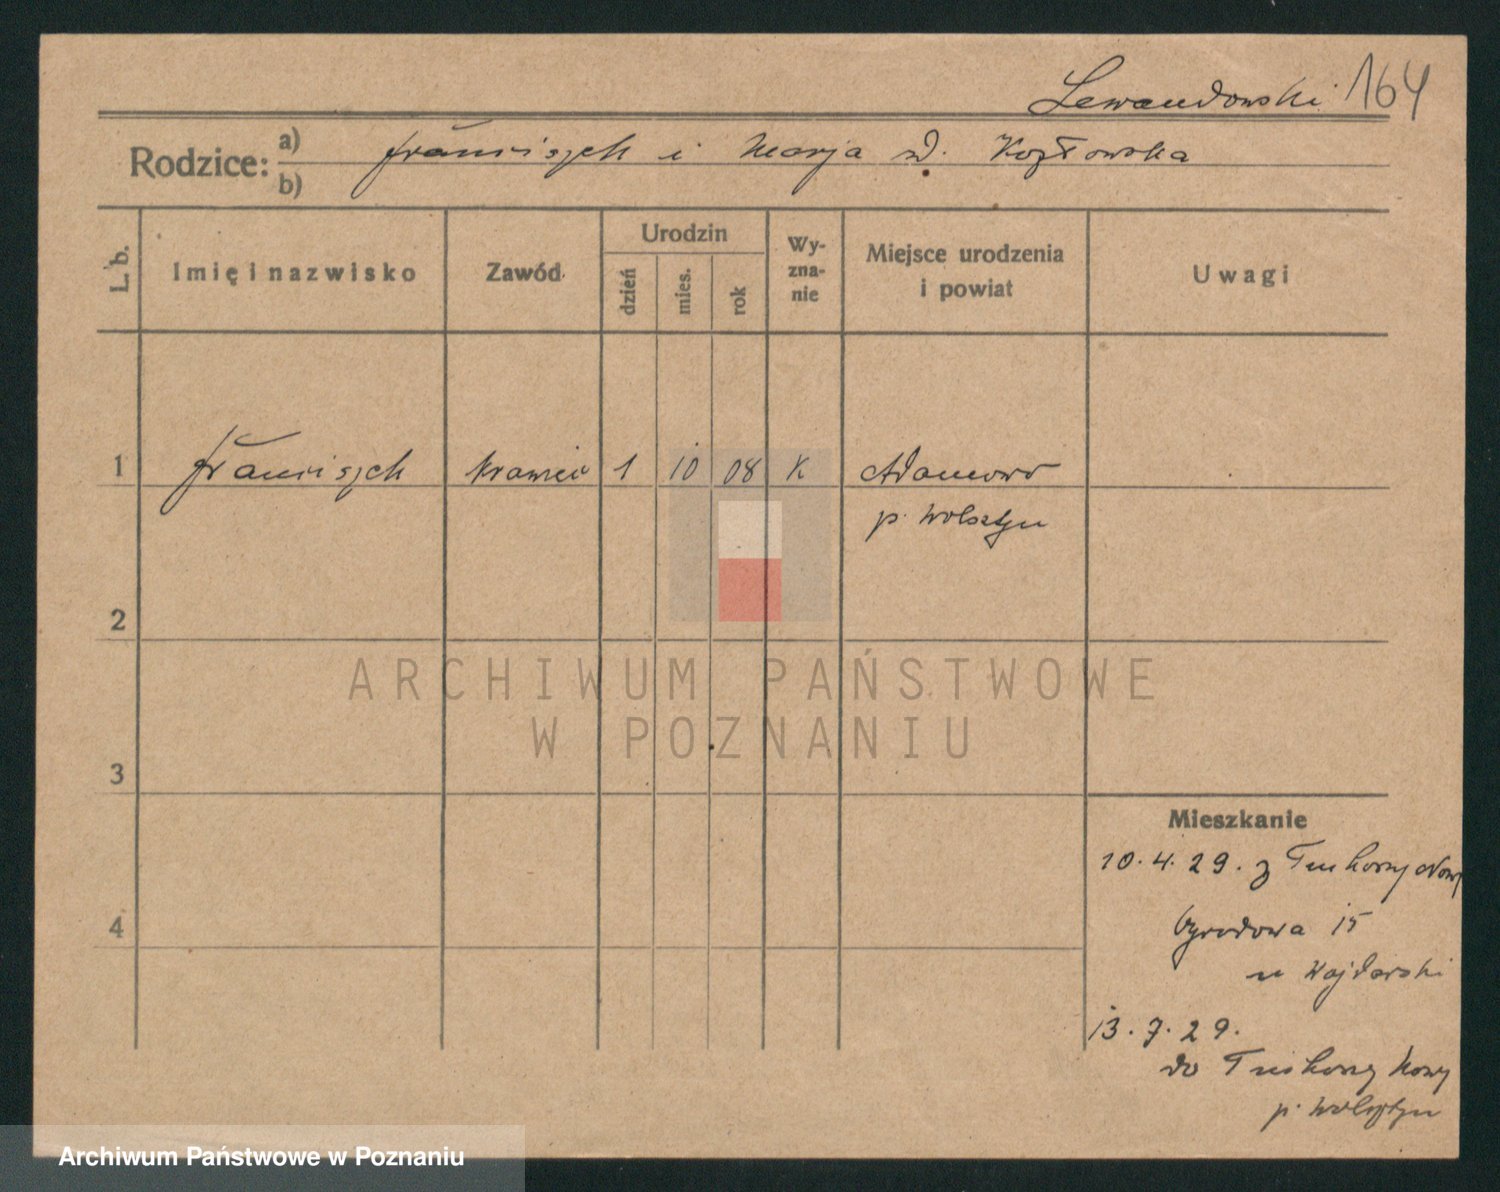 Lewandowski 164
Rodzice: a) b) Franciszek i Marja zd. Kozłowska
L. b.
Imię i nazwisko
Zawód
Urodzin
dzień
mies.
rok
Wy-
zna-
nie
Miejsce urodzenia
i powiat
Uwagi
1 Franciszek krawiec 1 10 08 K Adamowo
p. Wolsztyn
2
ARCHIWUM PAŃSTWOWE
W POZNANIU
3
Mieszkanie
10.4.29. z Tuchorzy Nowy
4
Ogrodowa 15
u Wojdarski
13.7.29.
do Tuchorzy Nowy
p. Wolsztyn
Archiwum Państwowe w Poznaniu